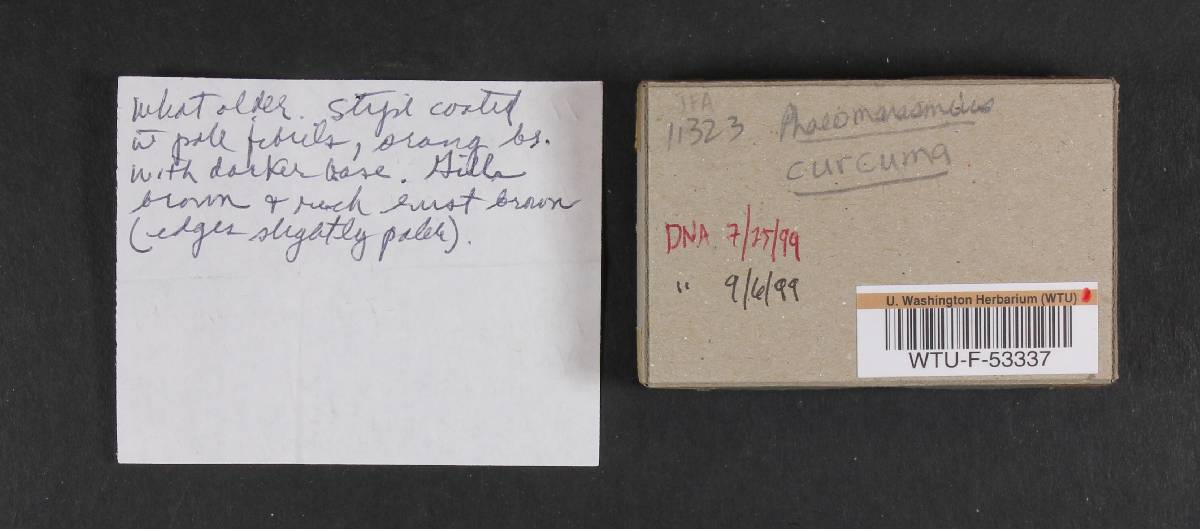 what older. Stipe coated
w pale fibrils, orang bs.
with darker base. Gills
brown & rich rust brown
(edges slightly paler).
JFA
11323 Phaeomarasmius
curcuma
DNA 7/25/99
" 9/6/99
U. Washington Herbarium (WTU)
WTU-F-53337